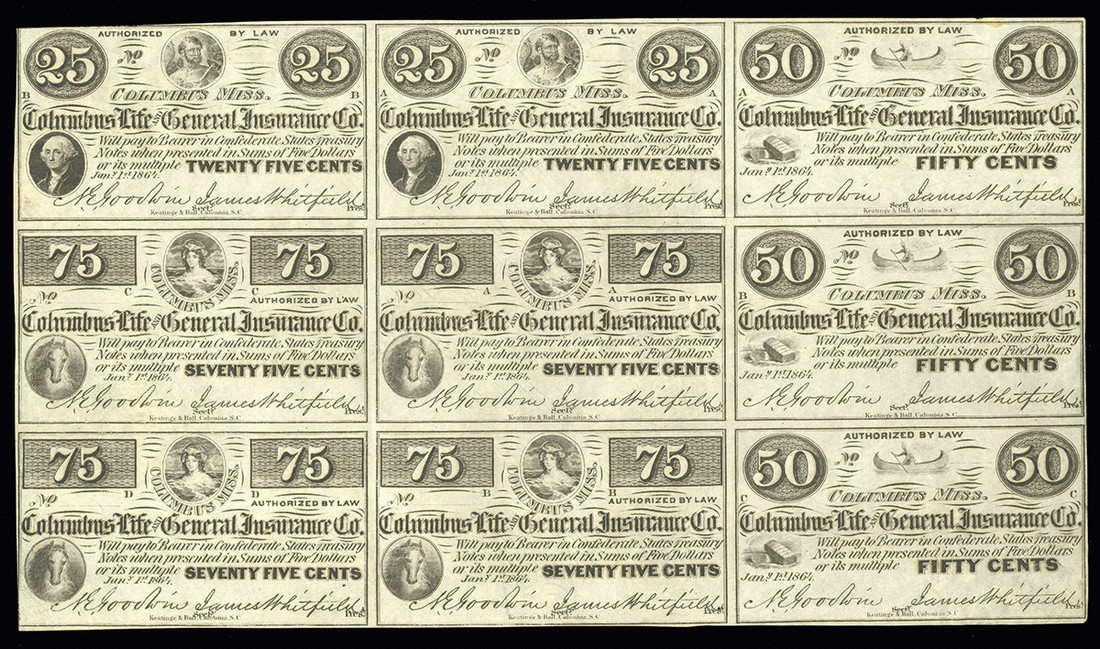 AUTHORIZED BY LAW
25 No 25
B COLUMBUS MISS. B
Columbus Life and General Insurance Co.
Will pay to Bearer in Confederate States Treasury
Notes when presented in Sums of Five Dollars
or its multiple TWENTY FIVE CENTS
Jany. 1st. 1864.
N E Goodwin James Whitfield
Secty. Prest.
Keatinge & Ball, Columbia S.C
AUTHORIZED BY LAW
25 No 25
A COLUMBUS MISS. A
Columbus Life and General Insurance Co.
Will pay to Bearer in Confederate States Treasury
Notes when presented in Sums of Five Dollars
or its multiple TWENTY FIVE CENTS
Jany. 1st. 1864.
N E Goodwin James Whitfield
Secty. Prest.
Keatinge & Ball, Columbia S.C
AUTHORIZED BY LAW
50 No 50
A COLUMBUS MISS. A
Columbus Life and General Insurance Co.
Will pay to Bearer in Confederate States Treasury
Notes when presented in Sums of Five Dollars
or its multiple FIFTY CENTS
Jany. 1st. 1864.
N E Goodwin James Whitfield
Secty. Prest.
Keatinge & Ball, Columbia S.C
75 75
COLUMBUS MISS.
No C C AUTHORIZED BY LAW
Columbus Life and General Insurance Co.
Will pay to Bearer in Confederate States Treasury
Notes when presented in Sums of Five Dollars
or its multiple SEVENTY FIVE CENTS
Jany. 1st. 1864.
N E Goodwin James Whitfield
Secty. Prest.
Keatinge & Ball, Columbia S.C
75 75
COLUMBUS MISS.
No A A AUTHORIZED BY LAW
Columbus Life and General Insurance Co.
Will pay to Bearer in Confederate States Treasury
Notes when presented in Sums of Five Dollars
or its multiple SEVENTY FIVE CENTS
Jany. 1st. 1864.
N E Goodwin James Whitfield
Secty. Prest.
Keatinge & Ball, Columbia S.C
AUTHORIZED BY LAW
50 No 50
B COLUMBUS MISS. B
Columbus Life and General Insurance Co.
Will pay to Bearer in Confederate States Treasury
Notes when presented in Sums of Five Dollars
or its multiple FIFTY CENTS
Jany. 1st. 1864.
N E Goodwin James Whitfield
Secty. Prest.
Keatinge & Ball, Columbia S.C
75 75
COLUMBUS MISS.
No D D AUTHORIZED BY LAW
Columbus Life and General Insurance Co.
Will pay to Bearer in Confederate States Treasury
Notes when presented in Sums of Five Dollars
or its multiple SEVENTY FIVE CENTS
Jany. 1st. 1864.
N E Goodwin James Whitfield
Secty. Prest.
Keatinge & Ball, Columbia S.C
75 75
COLUMBUS MISS.
No B B AUTHORIZED BY LAW
Columbus Life and General Insurance Co.
Will pay to Bearer in Confederate States Treasury
Notes when presented in Sums of Five Dollars
or its multiple SEVENTY FIVE CENTS
Jany. 1st. 1864.
N E Goodwin James Whitfield
Secty. Prest.
Keatinge & Ball, Columbia S.C
AUTHORIZED BY LAW
50 No 50
C COLUMBUS MISS. C
Columbus Life and General Insurance Co.
Will pay to Bearer in Confederate States Treasury
Notes when presented in Sums of Five Dollars
or its multiple FIFTY CENTS
Jany. 1st. 1864.
N E Goodwin James Whitfield
Secty. Prest.
Keatinge & Ball, Columbia S.C